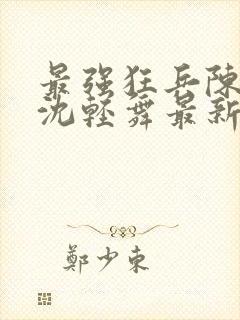 最强狂兵陳
沈輕舞最新
鄭少東